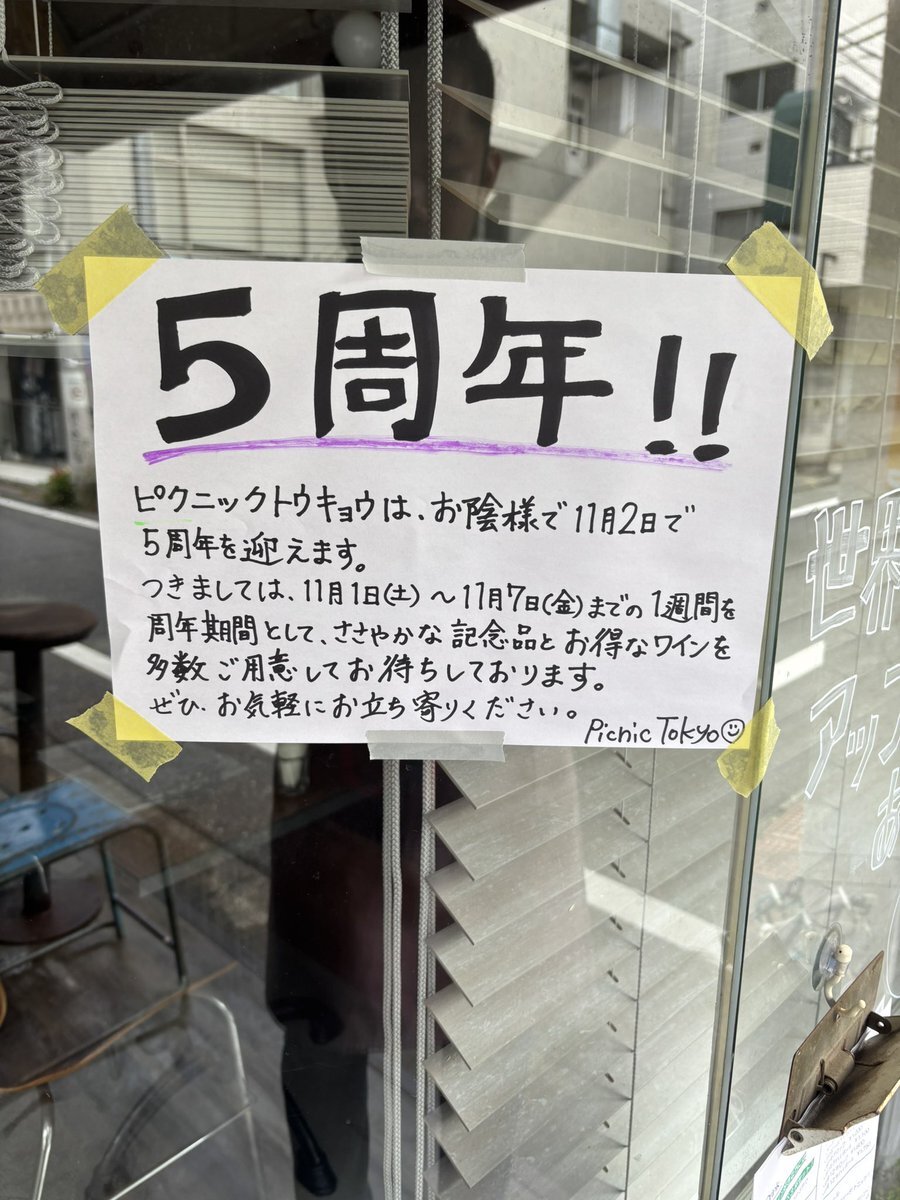 5周年!!
ピクニックトウキョウは、お陰様で11月2日で
5周年を迎えます。
つきましては、11月1日(土)~11月7日(金)までの1週間を
周年期間として、ささやかな記念品とお得なワインを
多数ご用意してお待ちしております。
ぜひ、お気軽にお立ち寄りください。
Picnic Tokyo
世界
アップ
あ